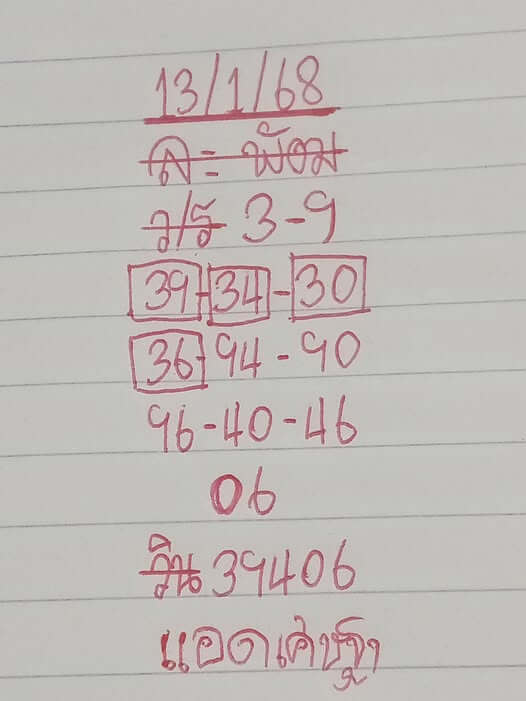 13/1/68
ล = พ้อม
ว/ร 3-9
39-34-30
36-94-90
96-40-46
06
วิน 39406
แอดเศรษฐา